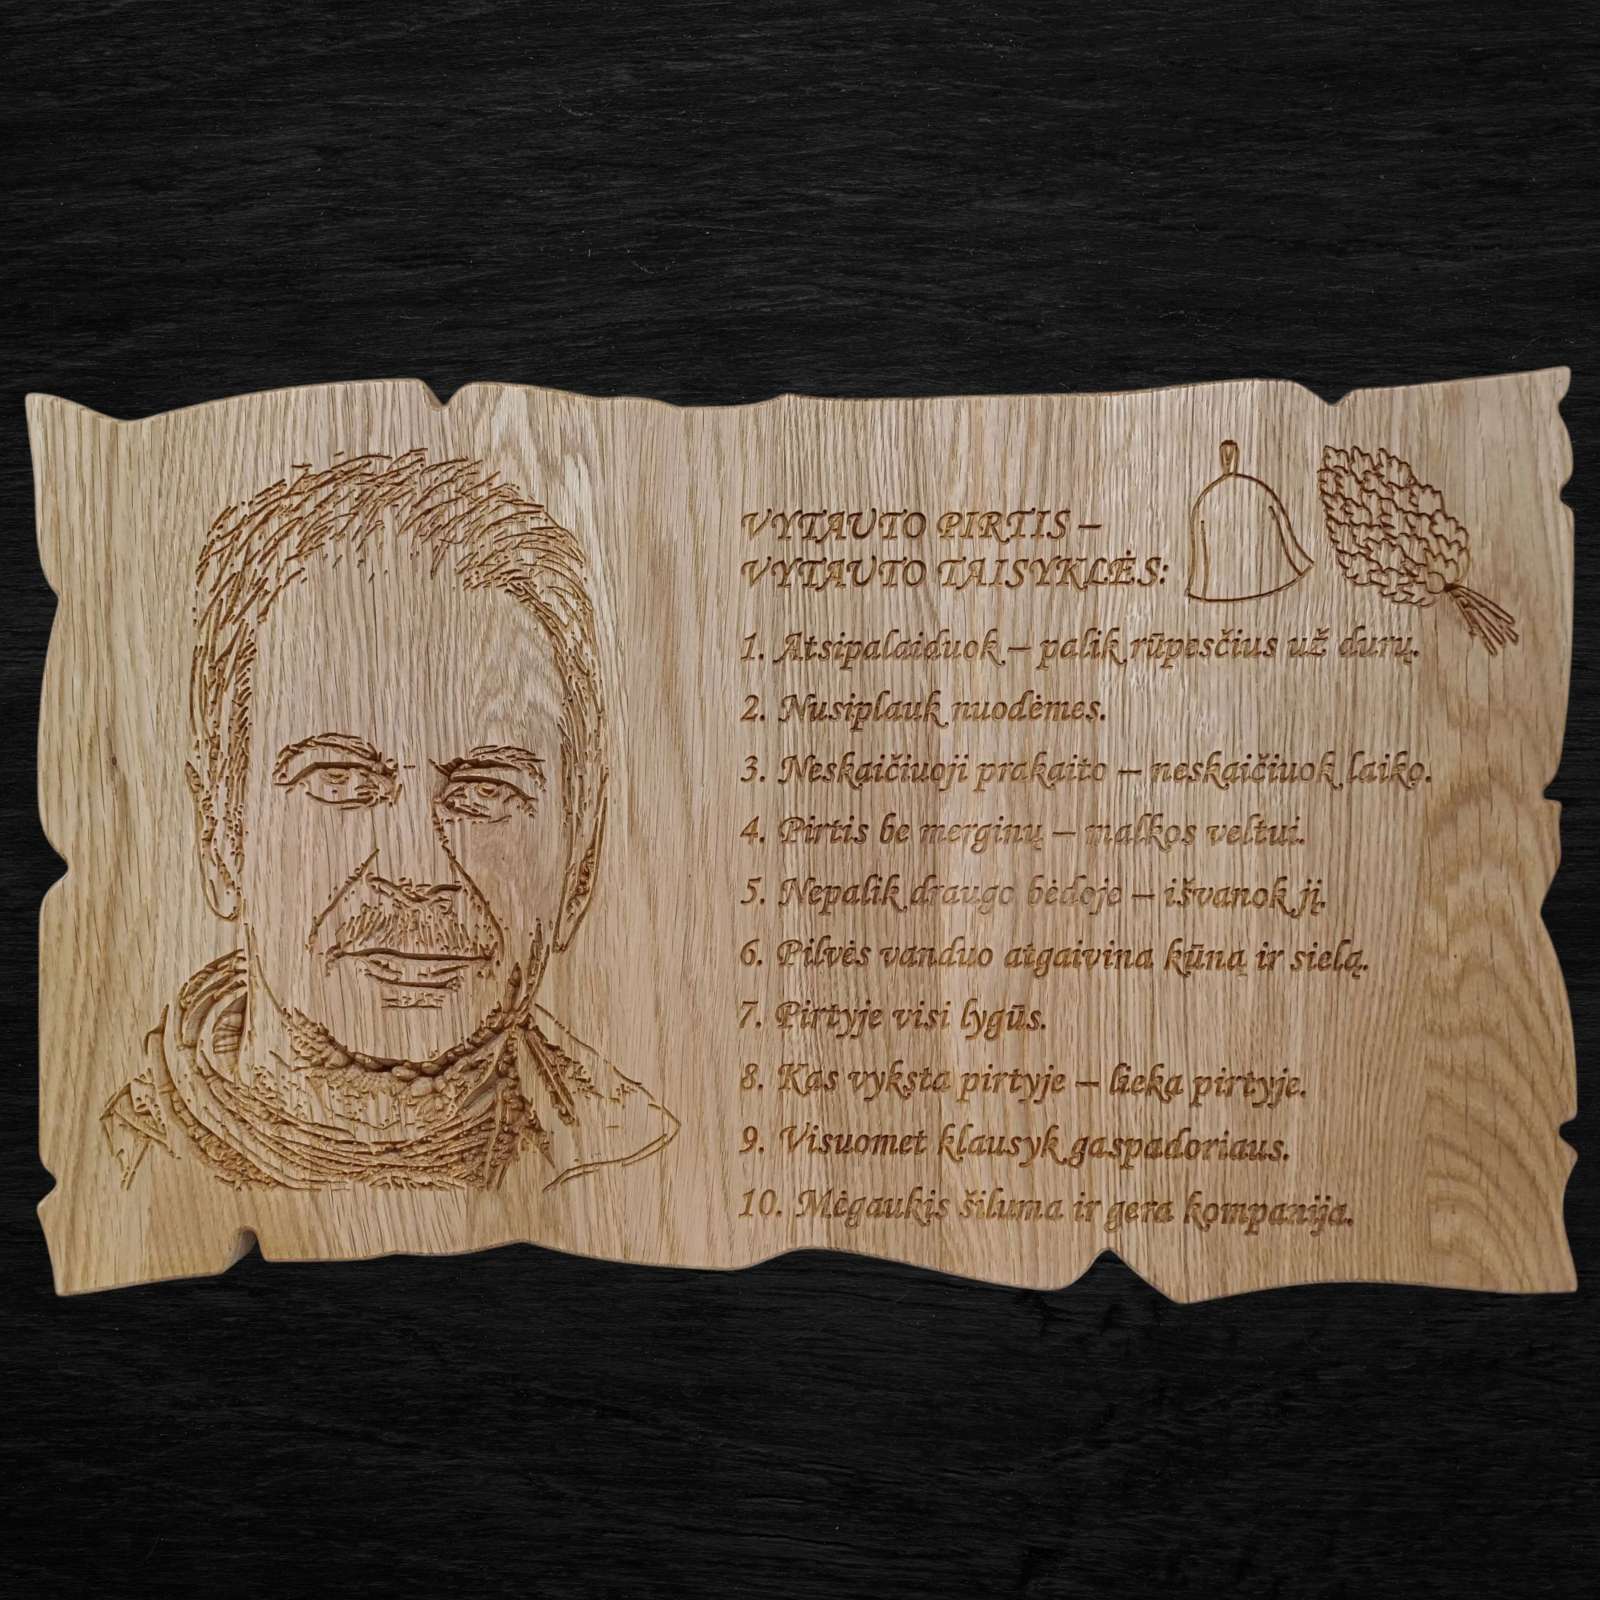 VYTAUTO PIRTIS –
VYTAUTO TAISYKLĖS:
1. Atsipalaiduok – palik rūpesčius už durų.
2. Nusiplauk nuodėmes.
3. Neskaičiuoji prakaito – neskaičiuok laiko.
4. Pirtis be merginų – malkos veltui.
5. Nepalik draugo bėdoje – išvanok jį.
6. Pilvės vanduo atgaivina kūną ir sielą.
7. Pirtyje visi lygūs.
8. Kas vyksta pirtyje – lieka pirtyje.
9. Visuomet klausyk gaspadoriaus.
10. Mėgaukis šiluma ir gera kompanija.